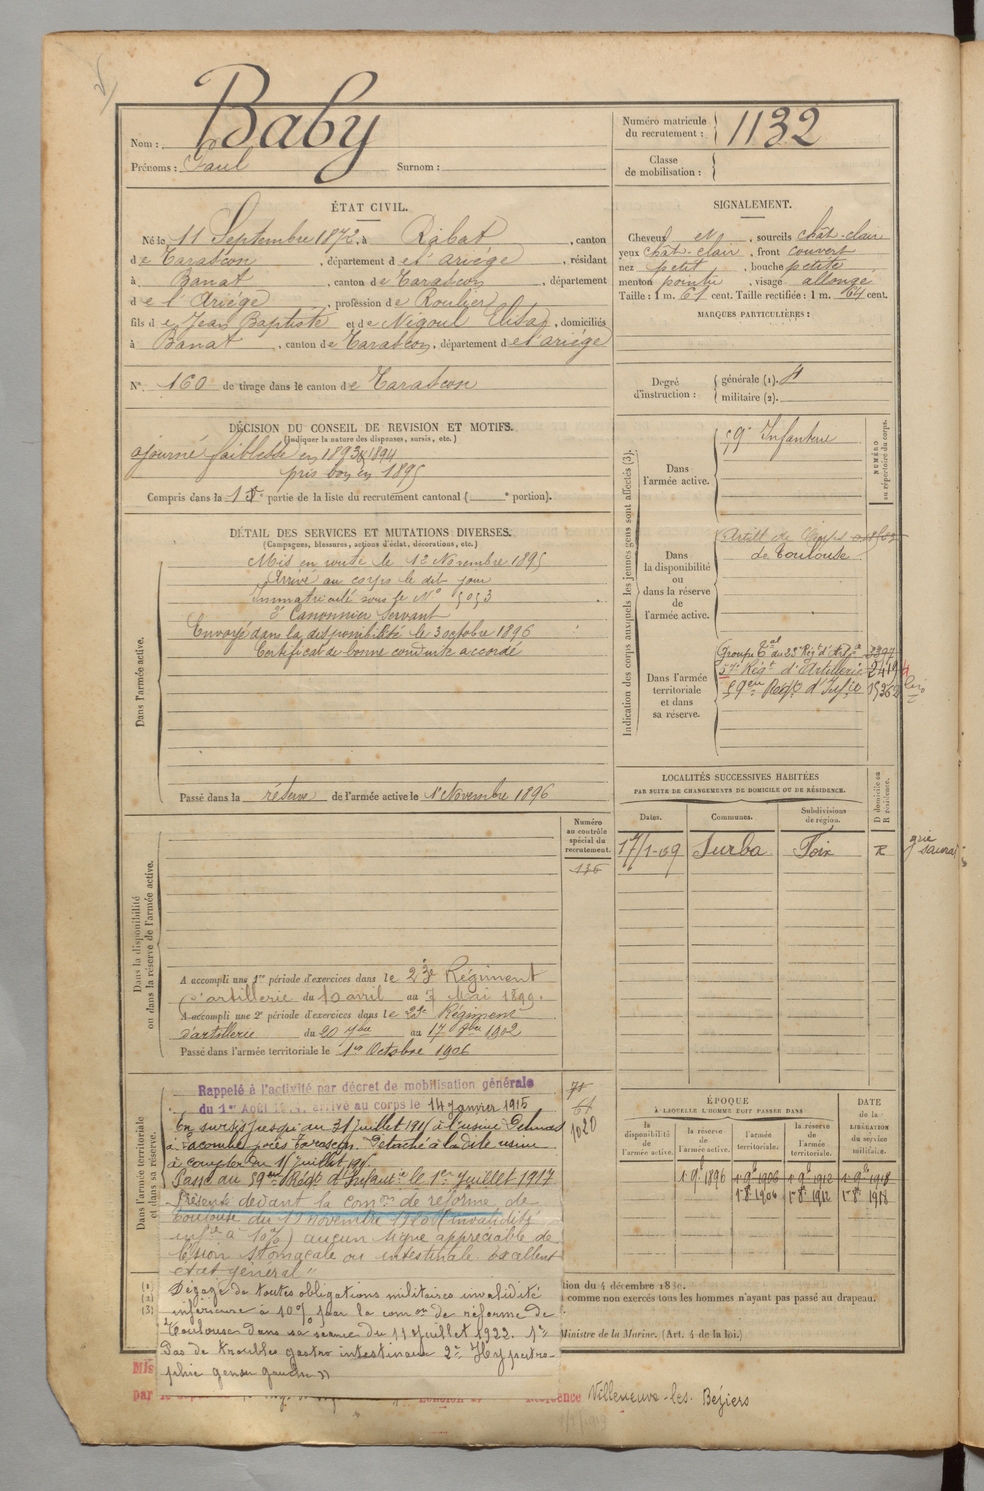 Baby
Nom :
Prénoms : Paul Surnom :
Numéro matricule
du recrutement : 1132
Classe
de mobilisation :
ÉTAT CIVIL.
Né le 11 Septembre 1872, à Rabat, canton
de Tarascon, département de l'ariège, résidant
à Banat, canton de Tarascon, département
de l'Ariège, profession de Roulier
fils de Jean Baptiste et de Nigoul Elisa, domiciliés
à Banat, canton de Tarascon, département de l'ariège
N° 160 de tirage dans le canton de Tarascon
SIGNALEMENT.
Cheveux et, sourcils chât-clair
yeux chât-clair, front couvert
nez petit, bouche petite
menton pointu, visage allongé
Taille : 1 m. 61 cent. Taille rectifiée : 1 m. 64 cent.
MARQUES PARTICULIÈRES :
Degré
d'instruction :
générale (1).
militaire (2).
DÉCISION DU CONSEIL DE REVISION ET MOTIFS.
(Indiquer la nature des dispenses, sursis, etc.)
ajourné faiblesse en 1893 & 1894
pris bon en 1895
Compris dans la 1re partie de la liste du recrutement cantonal ( e portion).
DÉTAIL DES SERVICES ET MUTATIONS DIVERSES.
(Campagnes, blessures, actions d'éclat, décorations, etc.)
Dans l'armée active.
Mis en route le 12 Novembre 1895
Arrivé au corps le dit jour
Immatriculé sous le N° 5053
2e Canonnier Servant
Envoyé dans la disponibilité le 3 octobre 1896
Certificat de bonne conduite accordé
Passé dans la réserve de l'armée active le 1r Novembre 1896
Indication des corps auxquels les jeunes gens sont affectés (3).
NUMÉRO
au répertoire du corps.
Dans
l'armée active.
59e Infanterie
Dans
la disponibilité
ou
dans la réserve
de
l'armée active.
Artill de Corps
de Toulouse
Dans l'armée
territoriale
et dans
sa réserve.
Groupe Tal du 23e Régt d'Artie
57e Régt d'Artillerie
59eme Régt d'Infie
LOCALITÉS SUCCESSIVES HABITÉES
PAR SUITE DE CHANGEMENTS DE DOMICILE OU DE RÉSIDENCE.
Dates. Communes. Subdivisions
de région.
D domicile ou
R résidence.
17/1-09 Surba Foix R
Dans la disponibilité
ou dans la réserve de l'armée active.
Numéro
au contrôle
spécial du
recrutement.
A accompli une 1re période d'exercices dans le 23e Régiment
d'artillerie du 10 avril au 7 Mai 1899.
A accompli une 2e période d'exercices dans le 23e Régiment
d'artillerie du 20 7bre au 17 8bre 1902
Passé dans l'armée territoriale le 1er Octobre 1906
Dans l'armée territoriale
et dans sa réserve.
Rappelé à l'activité par décret de mobilisation générale
du 1er Août 1914, arrivé au corps le 14 Janvier 1915
En sursis jusqu'au 31 juillet 1915 à l'usine
à Lacombe près Tarascon. Détaché à la dite usine
à compter du 1 juillet
Passé au 59eme Régt d'Infanie le 1er Juillet 1917
Présenté devant la comon de réforme de
Toulouse du Novembre (Invalidité
infre à 10%) aucun signe appréciable de
lésion stomacale ou intestinale Excellent
état général"
Dégagé de toutes obligations militaires invalidité
inférieure à 10% par la comon de réforme de
Toulouse dans sa séance du 11 Juillet 1922. 1°
Pas de troubles gastro intestinaux 2° Hypertro-
phie genou gauche "
1020
ÉPOQUE
À LAQUELLE L'HOMME DOIT PASSER DANS
la
disponibilité
de
l'armée active.
la réserve
de
l'armée active.
l'armée
territoriale.
la réserve
de
l'armée
territoriale.
DATE
de la
LIBÉRATION
du service
militaire.
1 9b 1896 1 9b 1906 1 9b 1912 1 9b 1918
1r 8b 1906 1r 8b 1912 1r 8b 1918
(1)
(2)
(3)
tion du 4 décembre 18
comme non exercés tous les hommes n'ayant pas passé au drapeau.
Ministre de la Marine. (Art. 4 de la loi.)
Mis
par
Villeneuve-les-Béziers